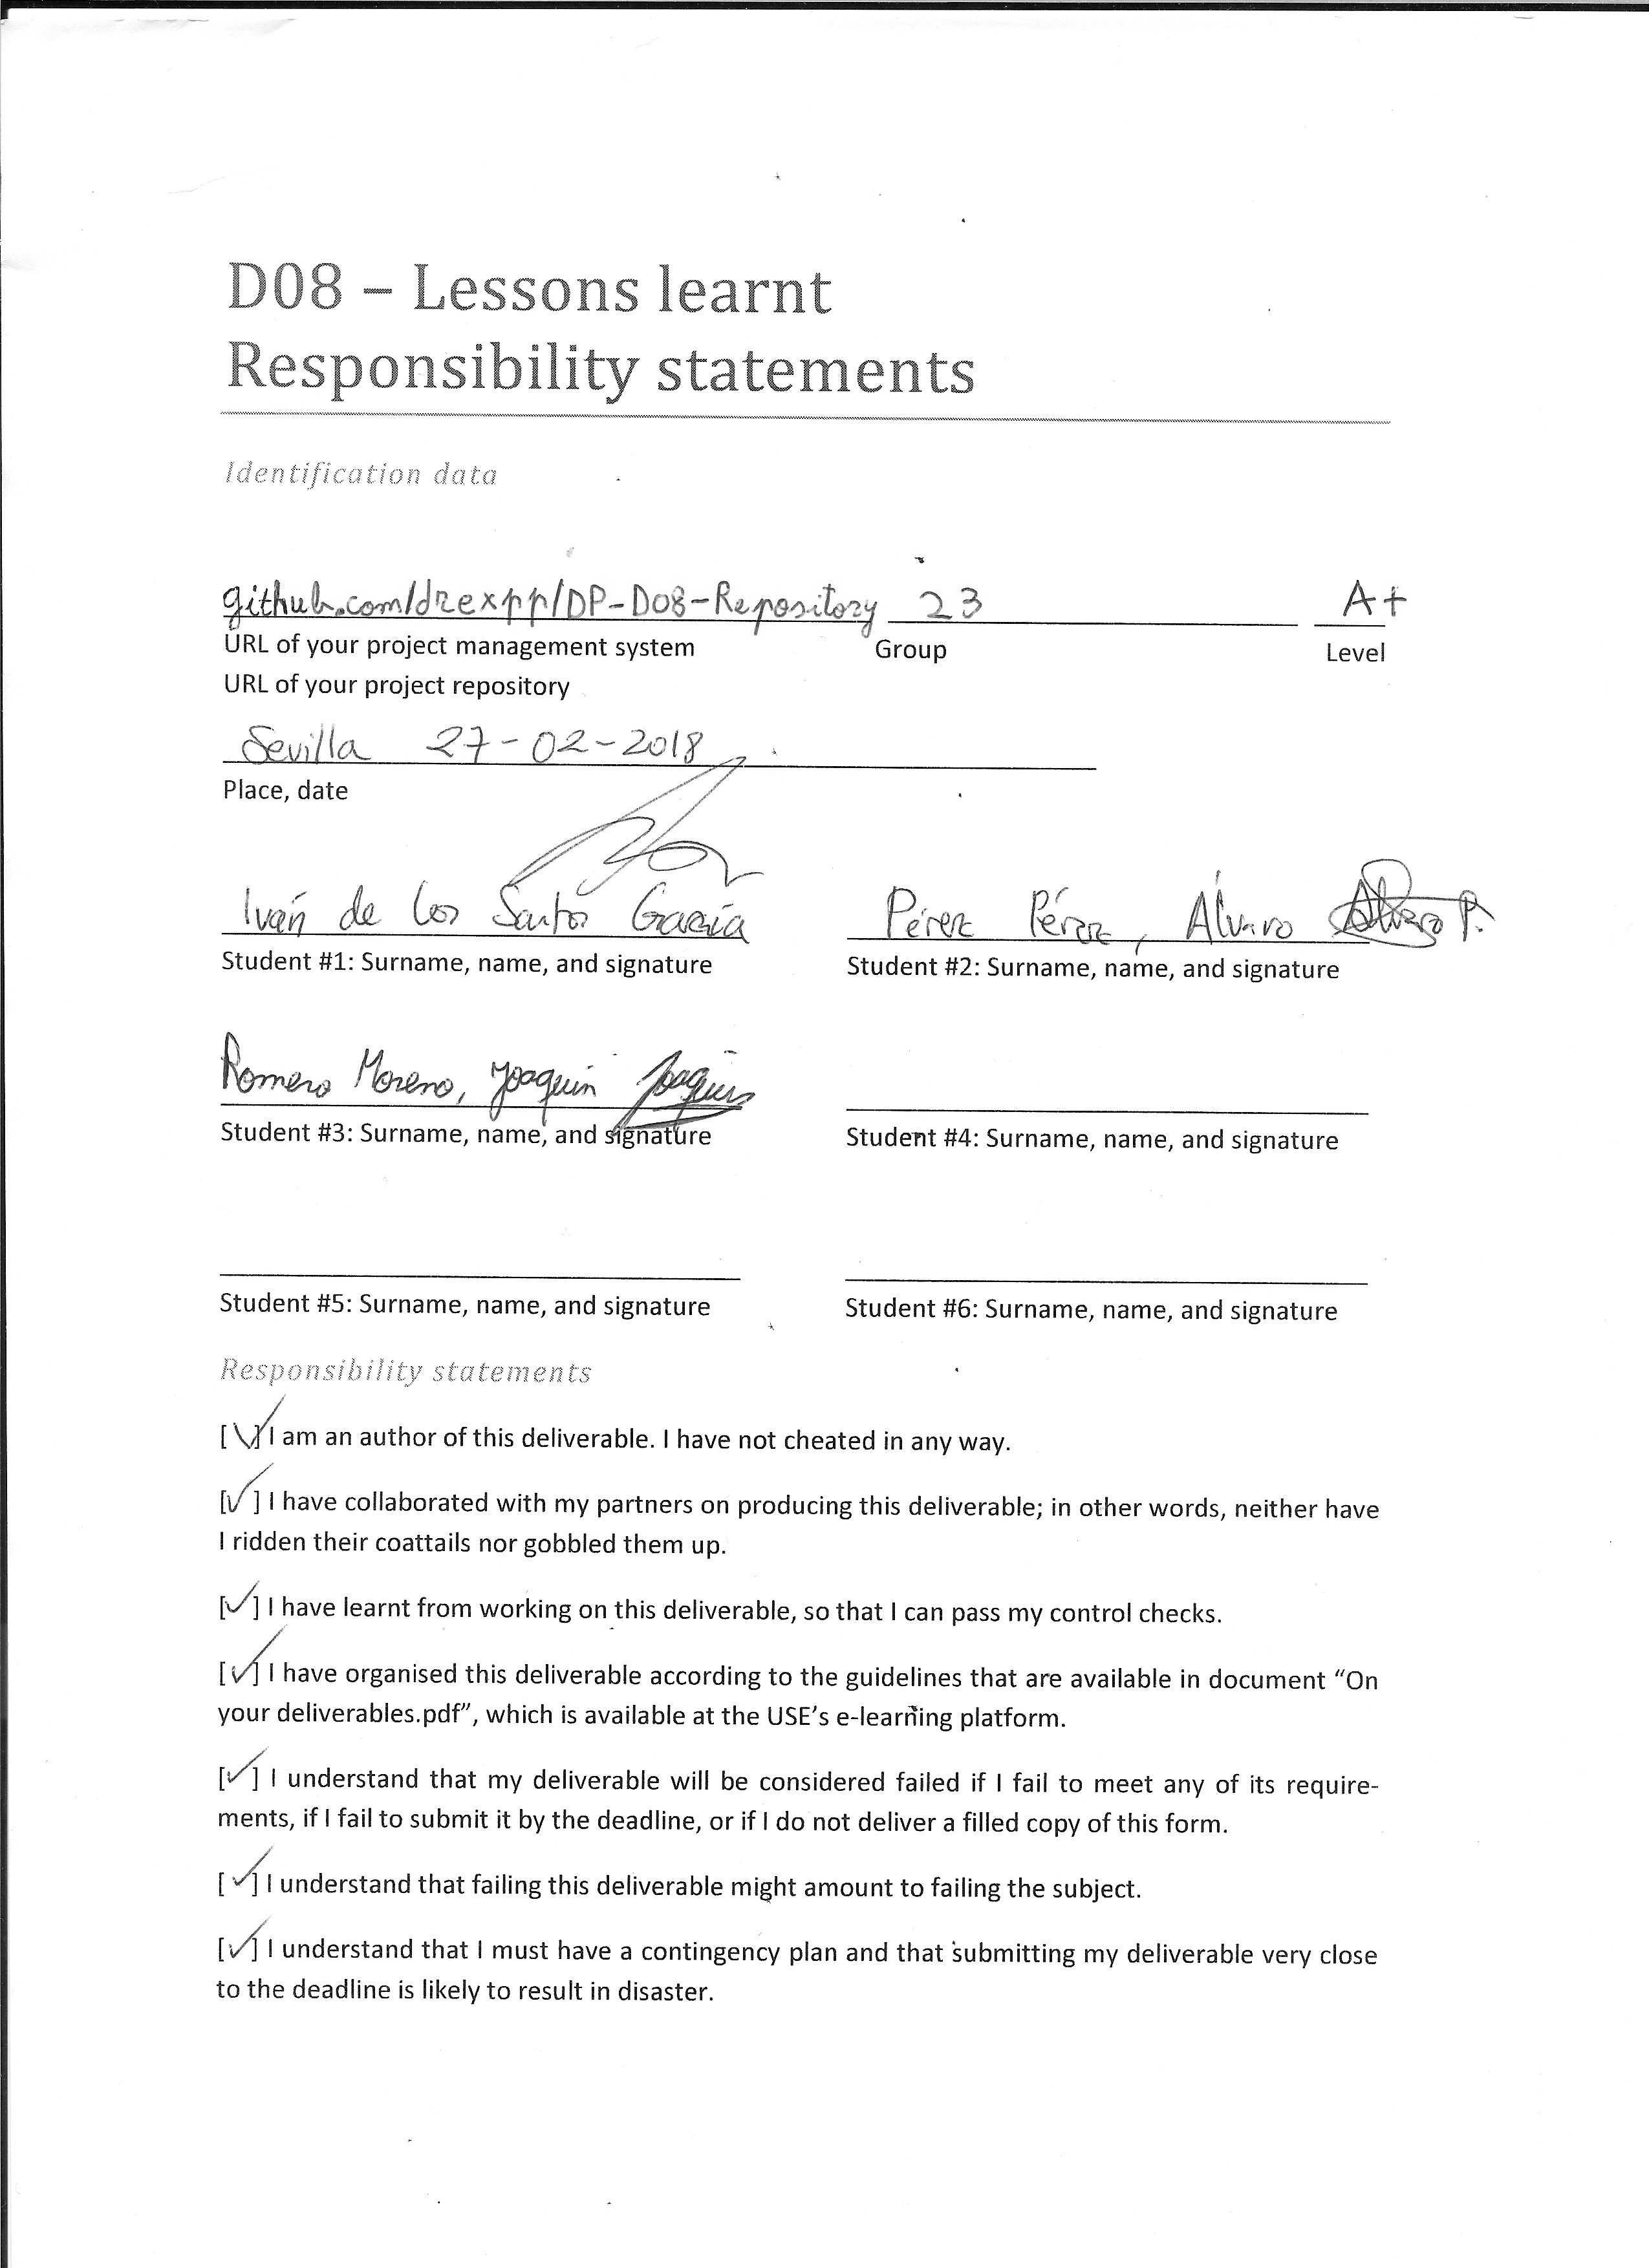 D08 – Lessons learnt
Responsibility statements
Identification data
github.com/drexpp/DP-D08-Repository 23 A+
URL of your project management system Group Level
URL of your project repository
Sevilla 27-02-2018
Place, date
Iván de los Santos García Pérez Pérez, Álvaro Álvaro P.
Student #1: Surname, name, and signature Student #2: Surname, name, and signature
Romero Moreno, Joaquín Joaquín
Student #3: Surname, name, and signature Student #4: Surname, name, and signature
Student #5: Surname, name, and signature Student #6: Surname, name, and signature
Responsibility statements
[✓] I am an author of this deliverable. I have not cheated in any way.
[✓] I have collaborated with my partners on producing this deliverable; in other words, neither have
I ridden their coattails nor gobbled them up.
[✓] I have learnt from working on this deliverable, so that I can pass my control checks.
[✓] I have organised this deliverable according to the guidelines that are available in document “On
your deliverables.pdf”, which is available at the USE’s e-learning platform.
[✓] I understand that my deliverable will be considered failed if I fail to meet any of its require-
ments, if I fail to submit it by the deadline, or if I do not deliver a filled copy of this form.
[✓] I understand that failing this deliverable might amount to failing the subject.
[✓] I understand that I must have a contingency plan and that submitting my deliverable very close
to the deadline is likely to result in disaster.